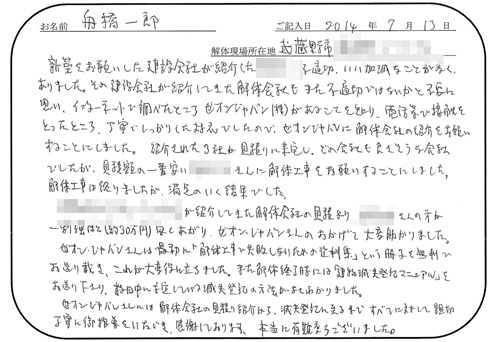 お名前 舟橋一郎 ご記入日 2014年7月13日
解体現場所在地 武蔵野市
新築をお願いした建設会社が紹介した 不適切、いい加減なことが多く
ありました。その建設会社が紹介してきた解体会社もまた不適切ではないかと不安に
思い、インターネットで調べたところゼオンジャパン(株)があることを知り、電話等で接触を
とったところ、丁寧でしっかりした対応でしたので、ゼオンジャパンに解体会社の紹介をお願い
することにしました。紹介された3社が見積りに来宅し、どの会社も良さそうな会社
でしたが、見積額の一番安い さんに解体工事をお願いすることにしました。
解体工事は終りましたが、満足のいく結果でした。
が紹介してきた解体会社の見積より さんの方が
一割強ほど(約30万円)安くあがり、ゼオンジャパンさんのおかげで大変助かりました。
ゼオンジャパンさんは最初に「解体工事で失敗しないための資料集」という冊子を無料で
お送り戴き、これが大変役に立ちました。また解体終了時には「建物滅失登記マニュアル」を
お送り下さり、数日中に予定している滅失登記の方法がよくわかりました。
ゼオンジャパンさんには解体会社の見積り紹介から、滅失登記に至るまですべてに対して親切
丁寧に御指導をいただき、感謝しております。本当に有難うございました。